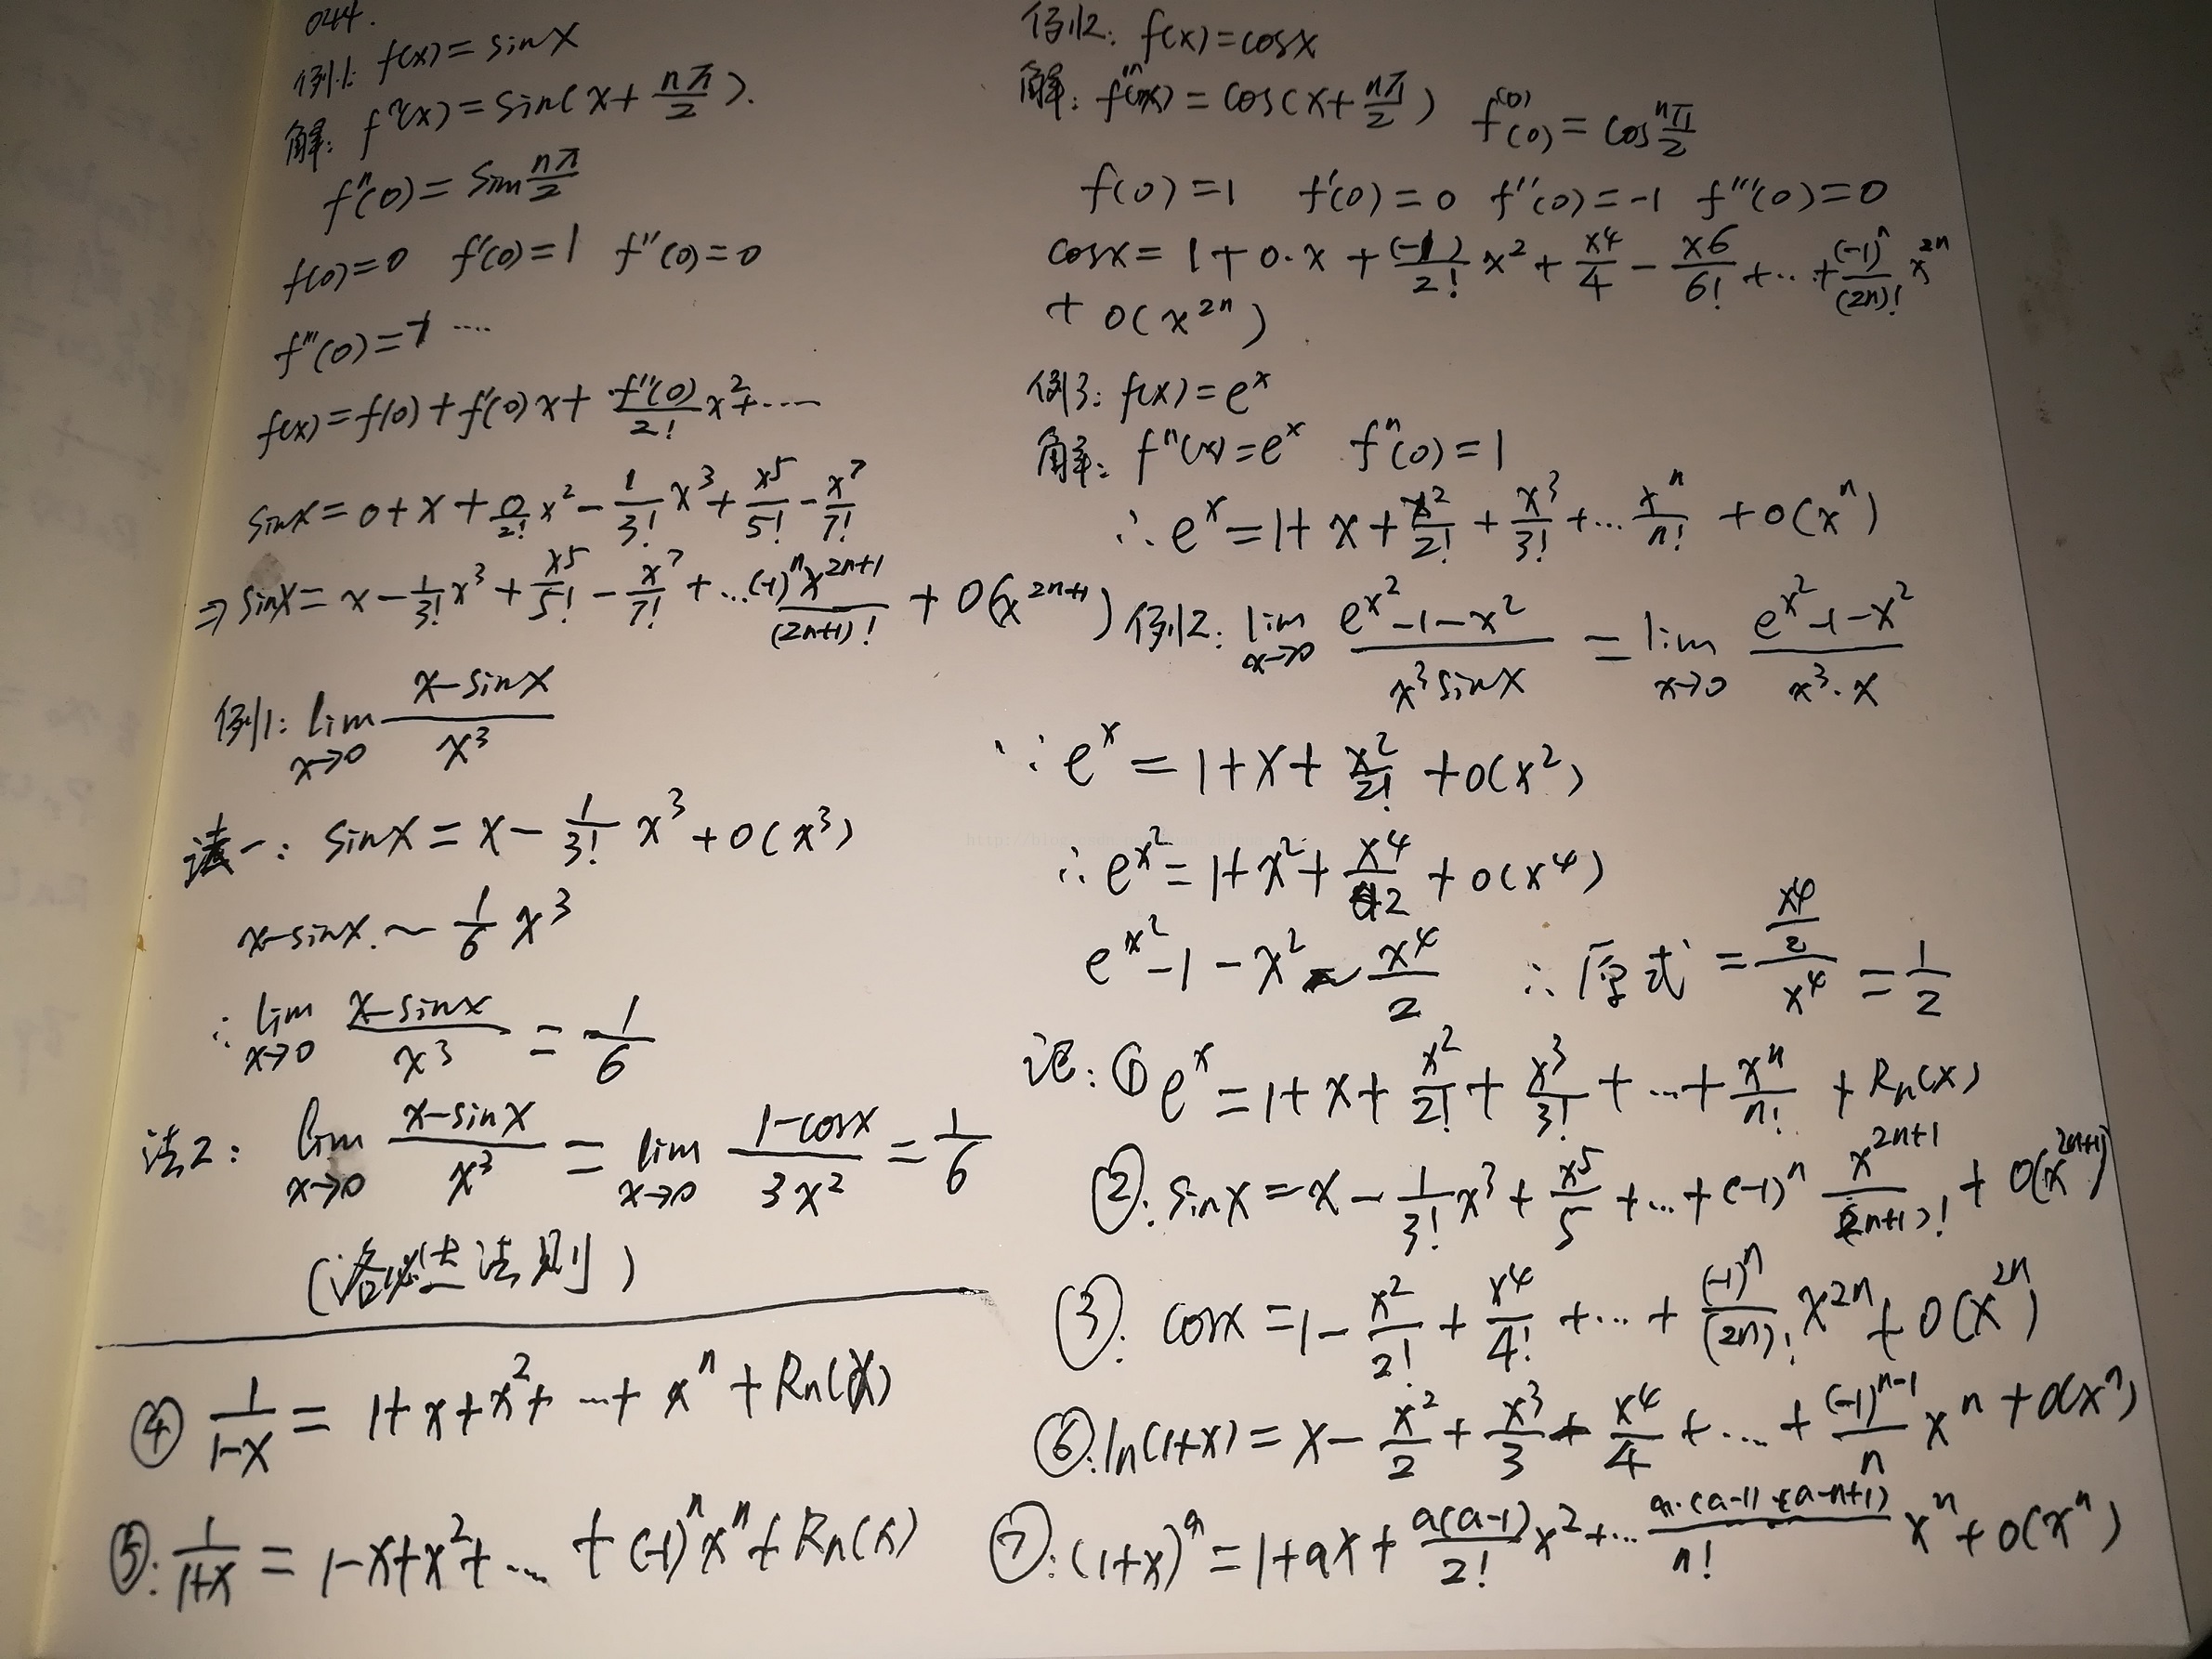 044.
例1: f(x)=sinx
解: fⁿ(x)=sin(x+nπ/2).
fⁿ(0)=sin nπ/2
f(0)=0 f'(0)=1 f''(0)=0
f'''(0)=-1 ....
f(x)=f(0)+f'(0)x+f''(0)/2! x²+....
sinx=0+x+0/2! x²-1/3! x³+x⁵/5!-x⁷/7!
⇒sinx=x-1/3! x³+x⁵/5!-x⁷/7!+...(-1)ⁿx²ⁿ⁺¹/(2n+1)!+o(x²ⁿ⁺¹)
例1: lim x→0 x-sinx/x³
法一: sinx=x-1/3! x³+o(x³)
x-sinx~1/6 x³
∴lim x→0 x-sinx/x³=1/6
法2: lim x→0 x-sinx/x³=lim x→0 1-cosx/3x²=1/6
(洛必达法则)
④ 1/1-x=1+x+x²+...+xⁿ+Rn(x)
⑤: 1/1+x=1-x+x²+...+(-1)ⁿxⁿ+Rn(x)
例2: f(x)=cosx
解: fⁿ(x)=cos(x+nπ/2) f⁽ⁿ⁾(0)=cos nπ/2
f(0)=1 f'(0)=0 f''(0)=-1 f'''(0)=0
cosx=1+0·x+(-1)/2! x²+x4/4-x6/6!+...+(-1)ⁿ/(2n)! x²ⁿ
+o(x²ⁿ)
例3: f(x)=eˣ
解: fⁿ(x)=eˣ fⁿ(0)=1
∴eˣ=1+x+x²/2!+x³/3!+...xⁿ/n!+o(xⁿ)
例2: lim x→0 e^x²-1-x²/x³sinx=lim x→0 e^x²-1-x²/x³·x
∵eˣ=1+x+x²/2!+o(x²)
∴e^x²=1+x²+x⁴/2+o(x⁴)
e^x²-1-x²~x⁴/2 ∴原式=x⁴/2/x⁴=1/2
记: ①eˣ=1+x+x²/2!+x³/3!+...+xⁿ/n!+Rn(x)
②: sinx=x-1/3! x³+x⁵/5+...+(-1)ⁿ x²ⁿ⁺¹/(2n+1)!+o(x²ⁿ⁺¹)
③: cosx=1-x²/2!+x⁴/4!+...+(-1)ⁿ/(2n)! x²ⁿ+o(x²ⁿ)
⑥: ln(1+x)=x-x²/2+x³/3-x⁴/4+...+(-1)ⁿ⁻¹/n xⁿ+o(xⁿ)
⑦: (1+x)ᵃ=1+ax+a(a-1)/2! x²+...a·(a-1)·(a-n+1)/n! xⁿ+o(xⁿ)